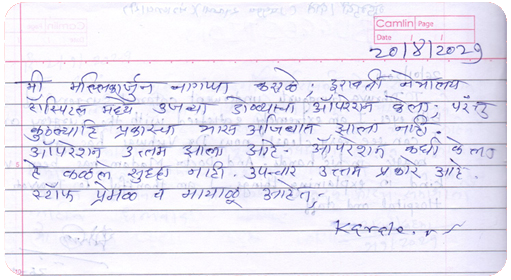 Camlin Page
Date / /
20/8/2029
मी मल्लिकार्जुन नागप्पा करळे, इरावती नेत्रालय
हॉस्पिटल मध्ये उजव्या डोळ्याचा ऑपरेशन केला, परंतु
कुठल्याहि प्रकारचा त्रास अजिबात झाला नाही.
ऑपरेशन उत्तम झाला आहे. ऑपरेशन कधी केलत
हे कळले सुद्धा नाही. उपचार उत्तम प्रकारे आहे.
स्टॉफ प्रेमळ व मायाळू आहेत,